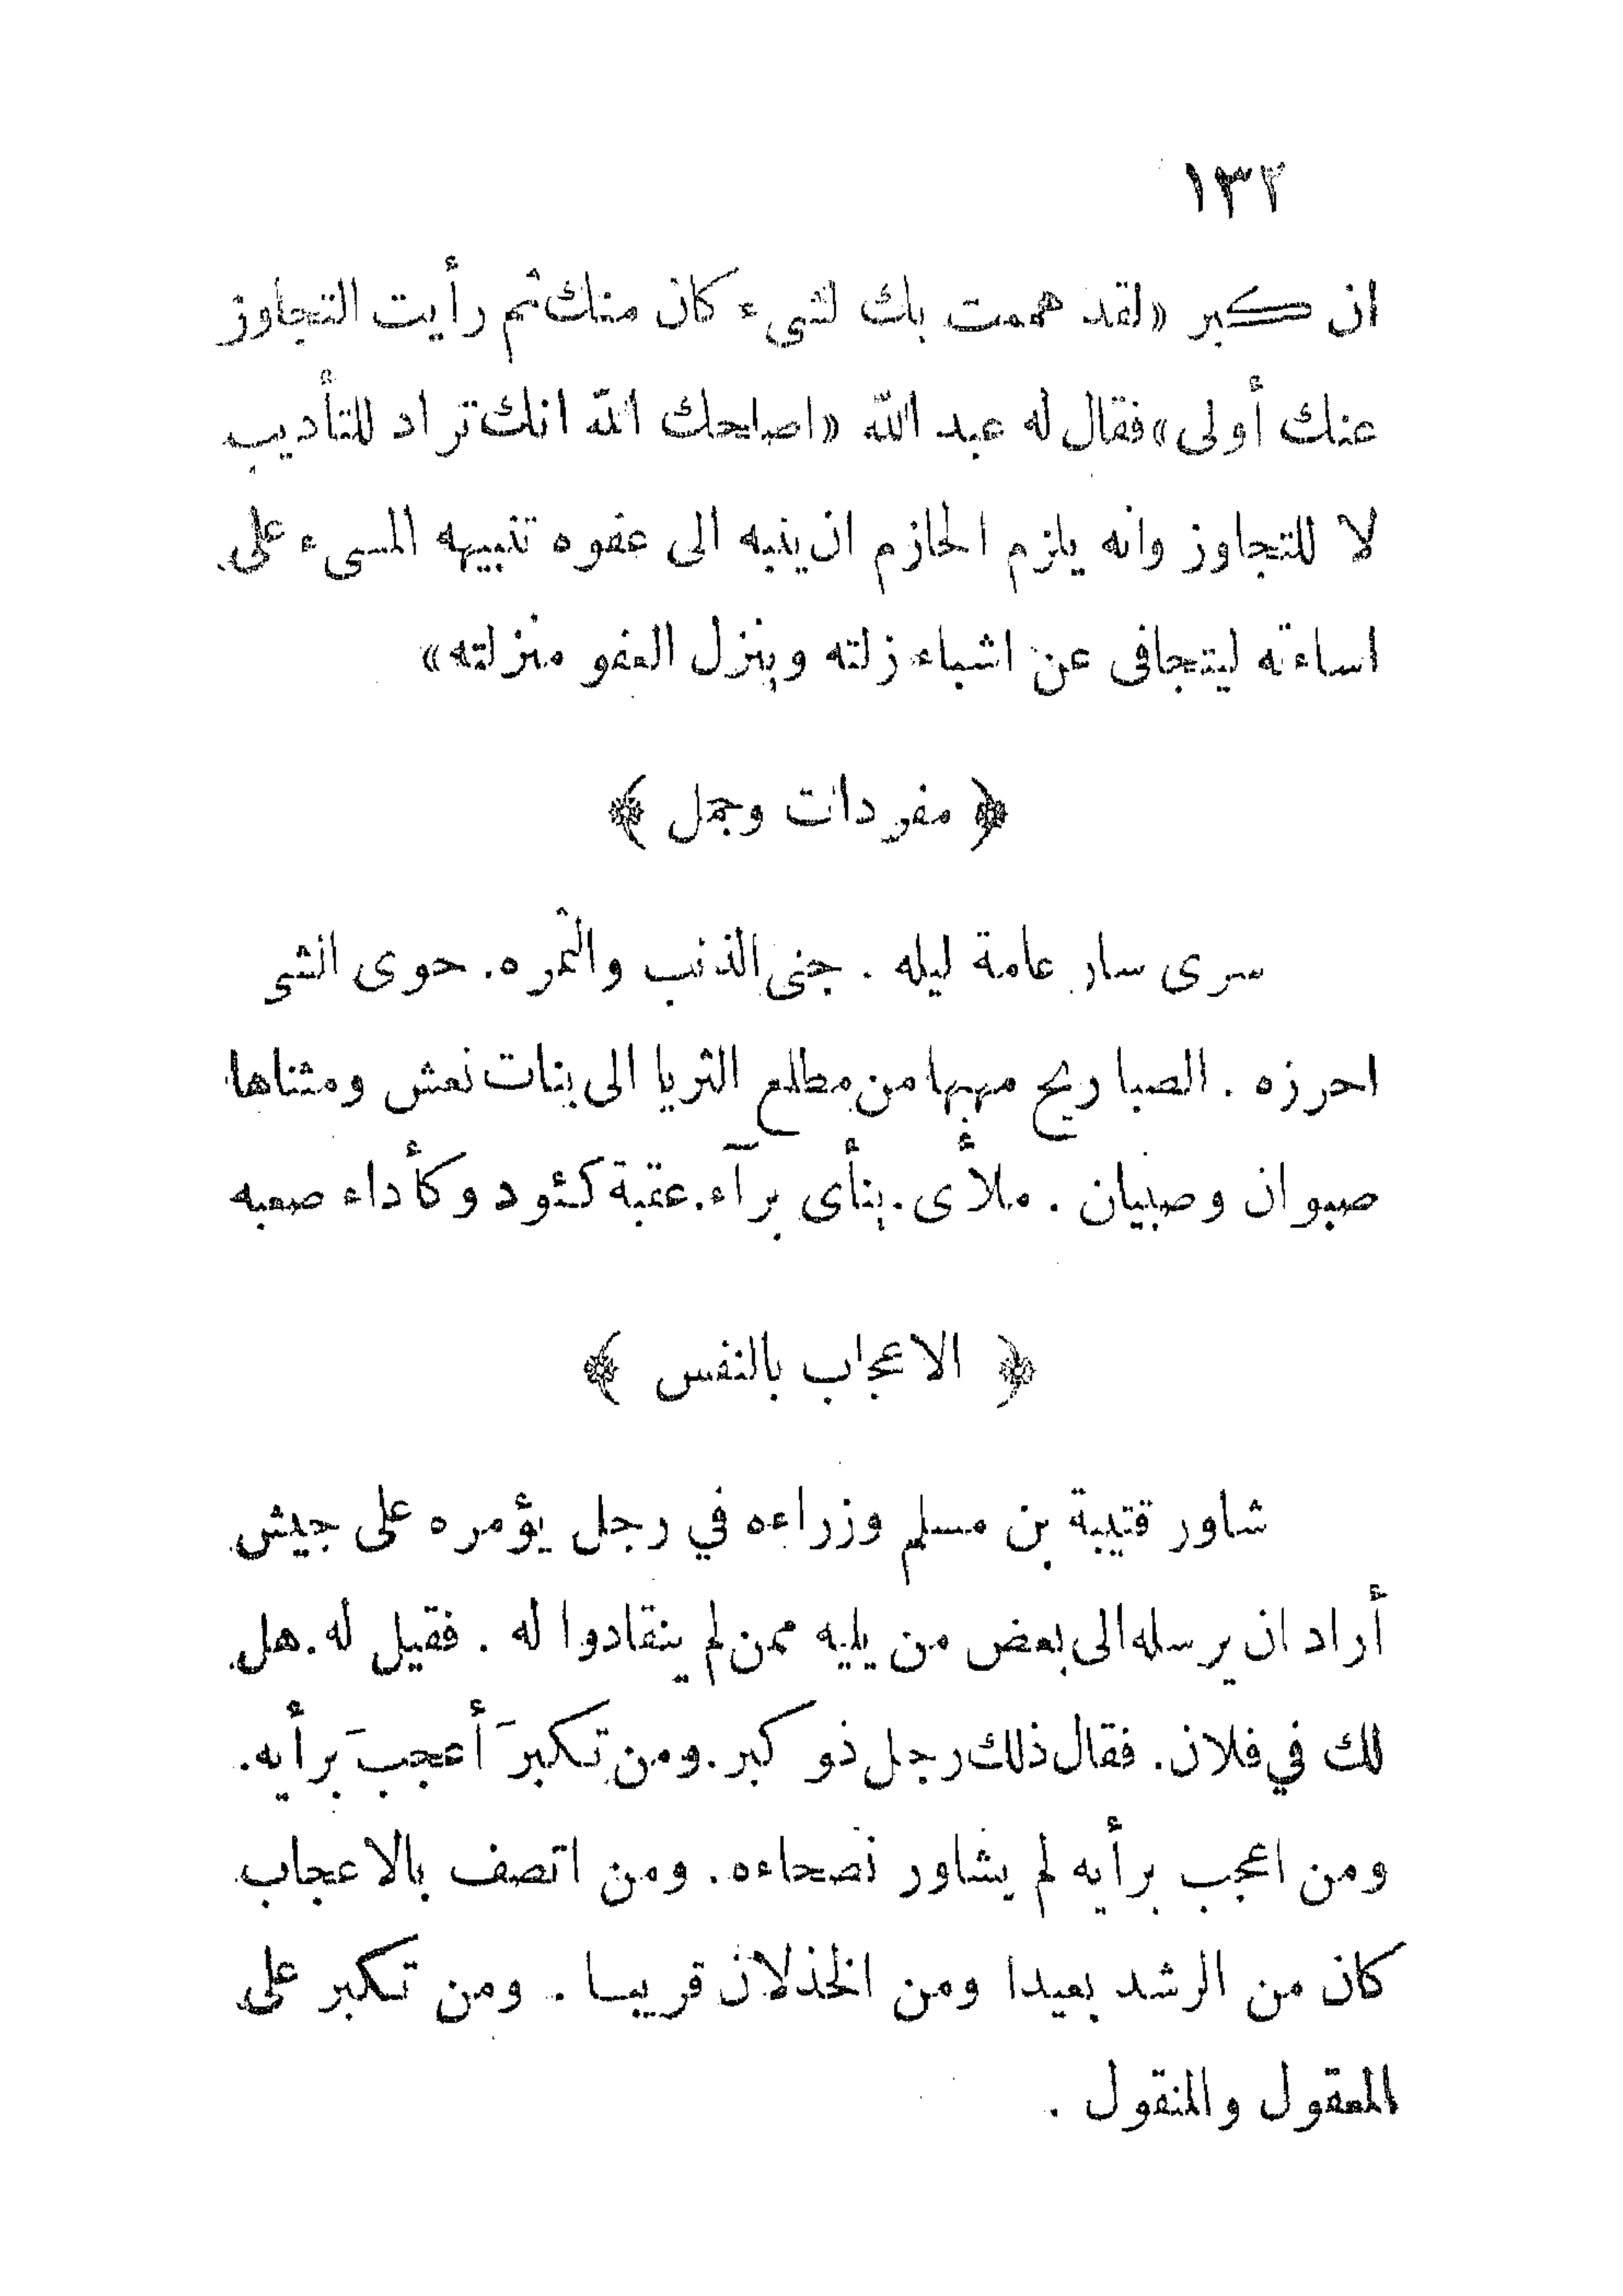 ١٣٢
ان كبر «لقد هممت بك لشيء كان منك ثم رأيت التجاوز
عنك أولى» فقال له عبد الله «اصلحك الله انك تراد للتأديب
لا للتجاوز وانه يلزم الحازم ان ينبه الى عفوه تنبيهه المسيء على
اساءته ليتجافى عن اشباه زلته وينزل العفو منزلته»
﴿ مفردات وجمل ﴾
سرى سار عامة ليله . جنى الذنب والثمره . حوى الشي
احرزه . الصبا ريح مهبها من مطلع الثريا الى بنات نعش ومثناها
صبوان وصبيان . ملأى . بنأى برآء . عقبة كئود وكأداء صعبه
﴿ الاعجاب بالنفس ﴾
شاور قتيبة بن مسلم وزراءه في رجل يؤمره على جيش
أراد ان يرسله الى بعض من يليه ممن لم ينقادوا له . فقيل له . هل
لك في فلان . فقال ذلك رجل ذو كبر . ومن تكبرَ أعجبَ برأيه .
ومن اعجب برأيه لم يشاور نصحاءه . ومن اتصف بالاعجاب
كان من الرشد بعيدا ومن الخذلان قريبا . ومن تكبر على
المعقول والمنقول .